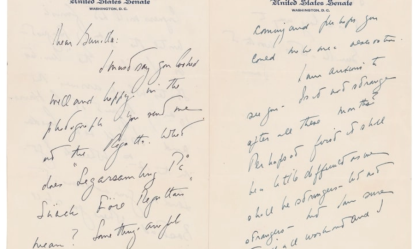 United States Senate
WASHINGTON, D.C.
Dear Gunilla:
I must say you looked
well and happy in the
photograph you sent me
at the Regatta. What
does "Segersamling På
Skäck Före Regattan"
mean? Something awful
United States Senate
WASHINGTON, D.C.
coming and perhaps you
could write me a
I am anxious to
see you. Is it not strange
after all these months?
Perhaps at first it shall
be a little difficult as we
shall be strangers - but not
strangers - but I am sure
it shall all work and I